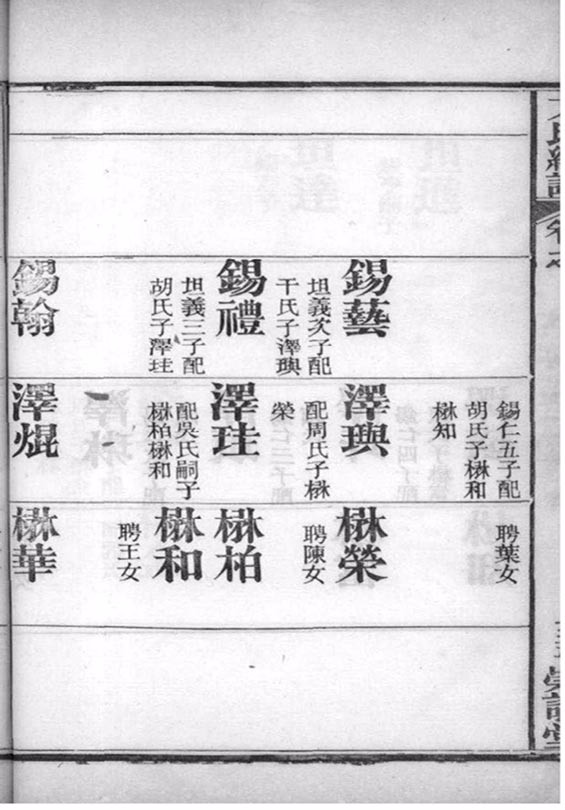 錫藝
坦義次子配
干氏子澤璵
錫禮
坦義三子配
胡氏子澤珪
錫翰
錫仁五子配
胡氏子楙和
楙知
澤璵
配周氏子楙
榮
澤珪
配吳氏嗣子
楙柏楙和
澤焜
聘葉女
楙榮
聘陳女
楙柏
楙和
聘王女
楙華